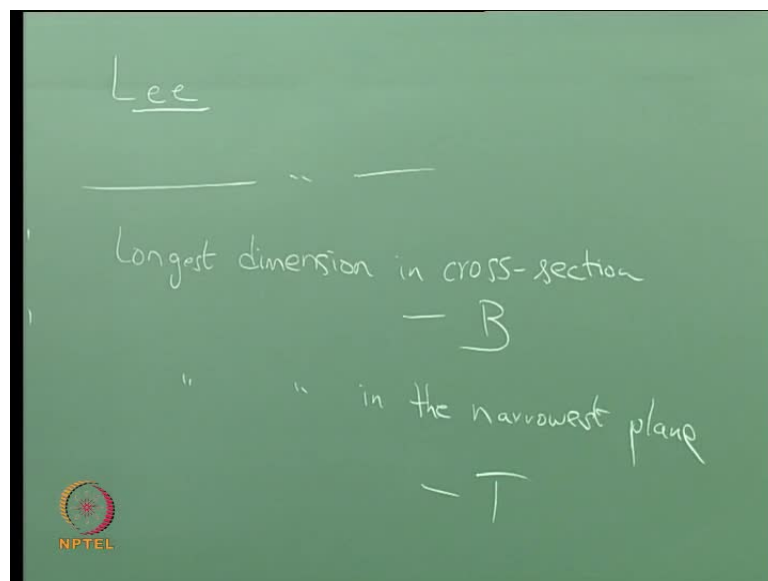 Lee
——— " ——
Longest dimension in cross-section
— B
" " in the narrowest plane
— T
NPTEL